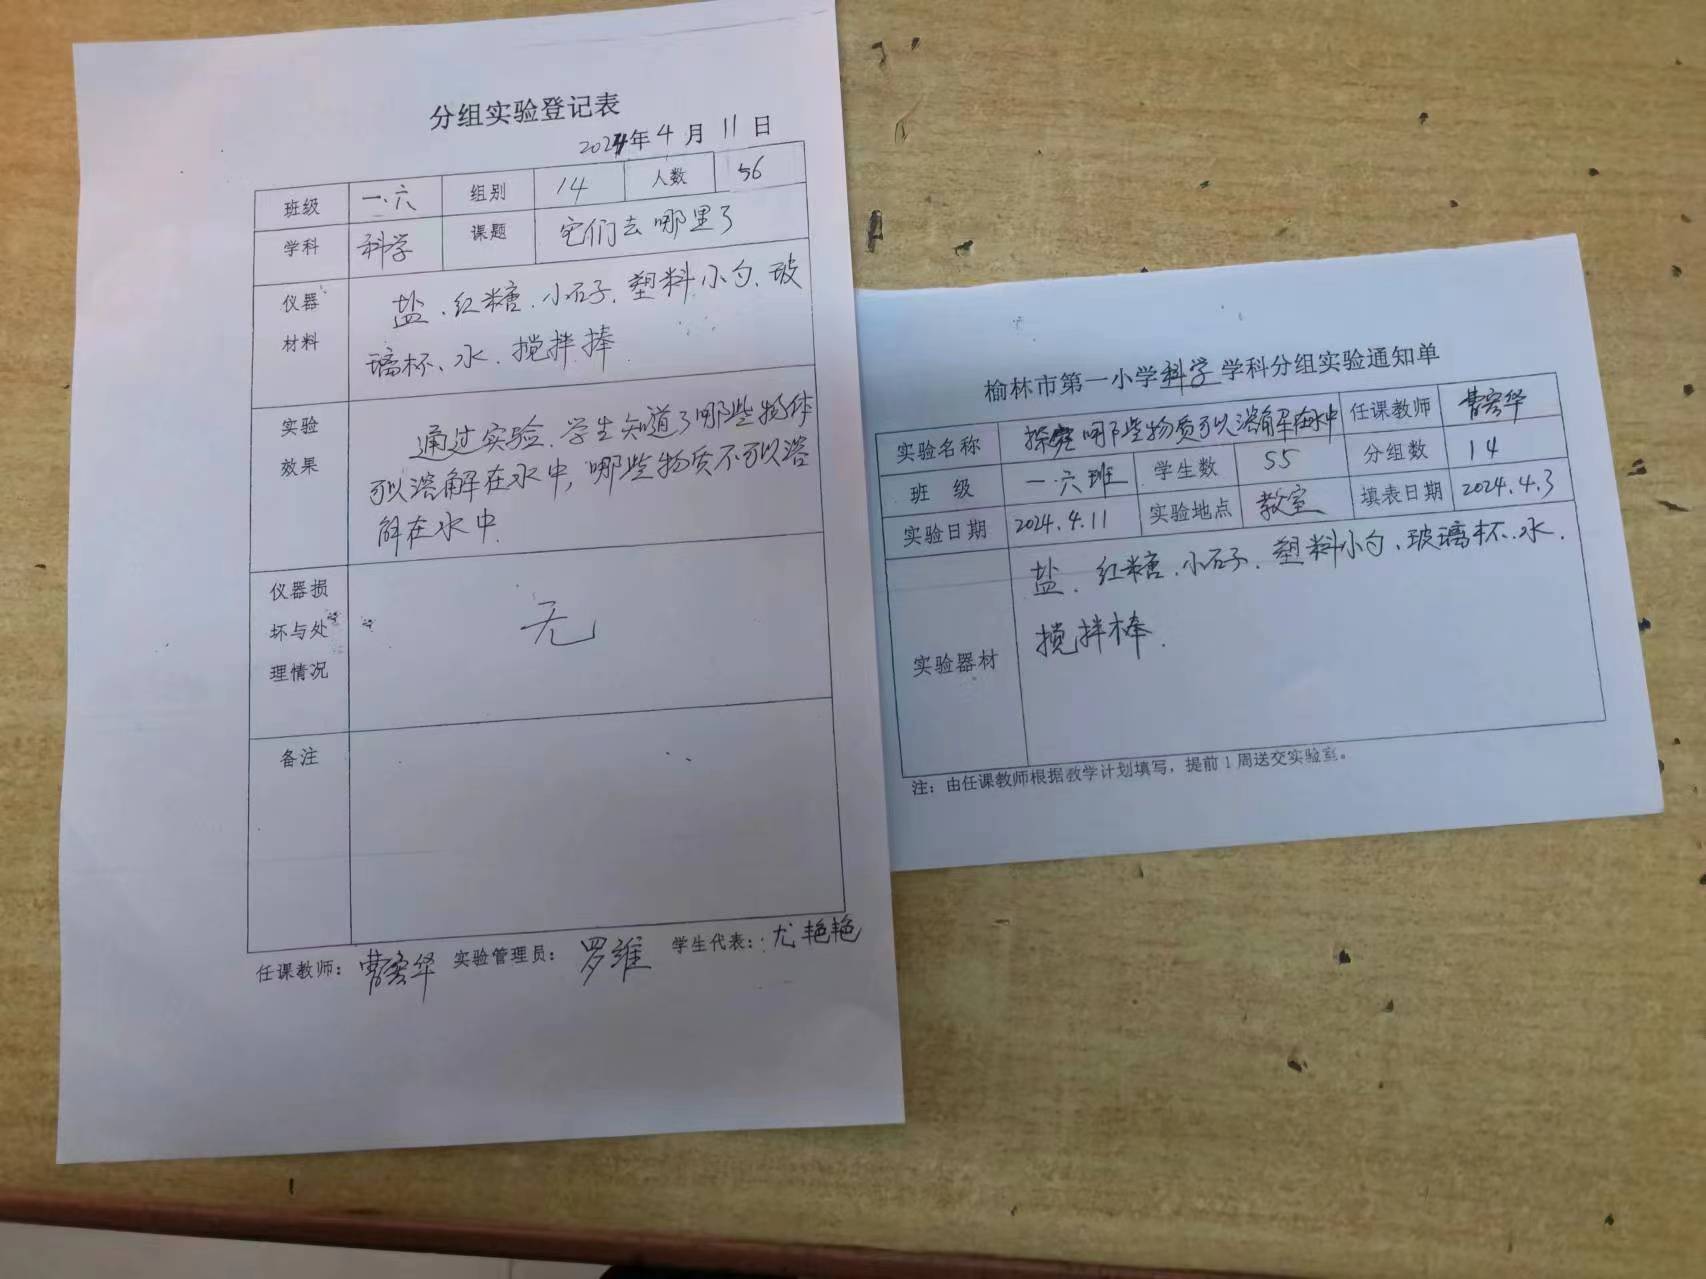 分组实验登记表
2024年4月11日
班级 一.六 组别 14 人数 56
学科 科学 课题 它们去哪里了
仪器材料 盐、红糖、小石子、塑料小勺、玻
璃杯、水、搅拌捧
实验效果 通过实验、学生知道了哪些物体
可以溶解在水中,哪些物质不可以溶
解在水中
仪器损坏与处理情况 无
备注
任课教师: 实验管理员: 罗维 学生代表: 尤艳艳
榆林市第一小学科学学科分组实验通知单
实验名称 探究哪些物质可以溶解在水中 任课教师
班 级 一.六班 学生数 55 分组数 14
实验日期 2024.4.11 实验地点 教室 填表日期 2024.4.3
实验器材 盐、红糖、小石子、塑料小勺、玻璃杯、水、
搅拌棒.
注:由任课教师根据教学计划填写,提前1周送交实验室。